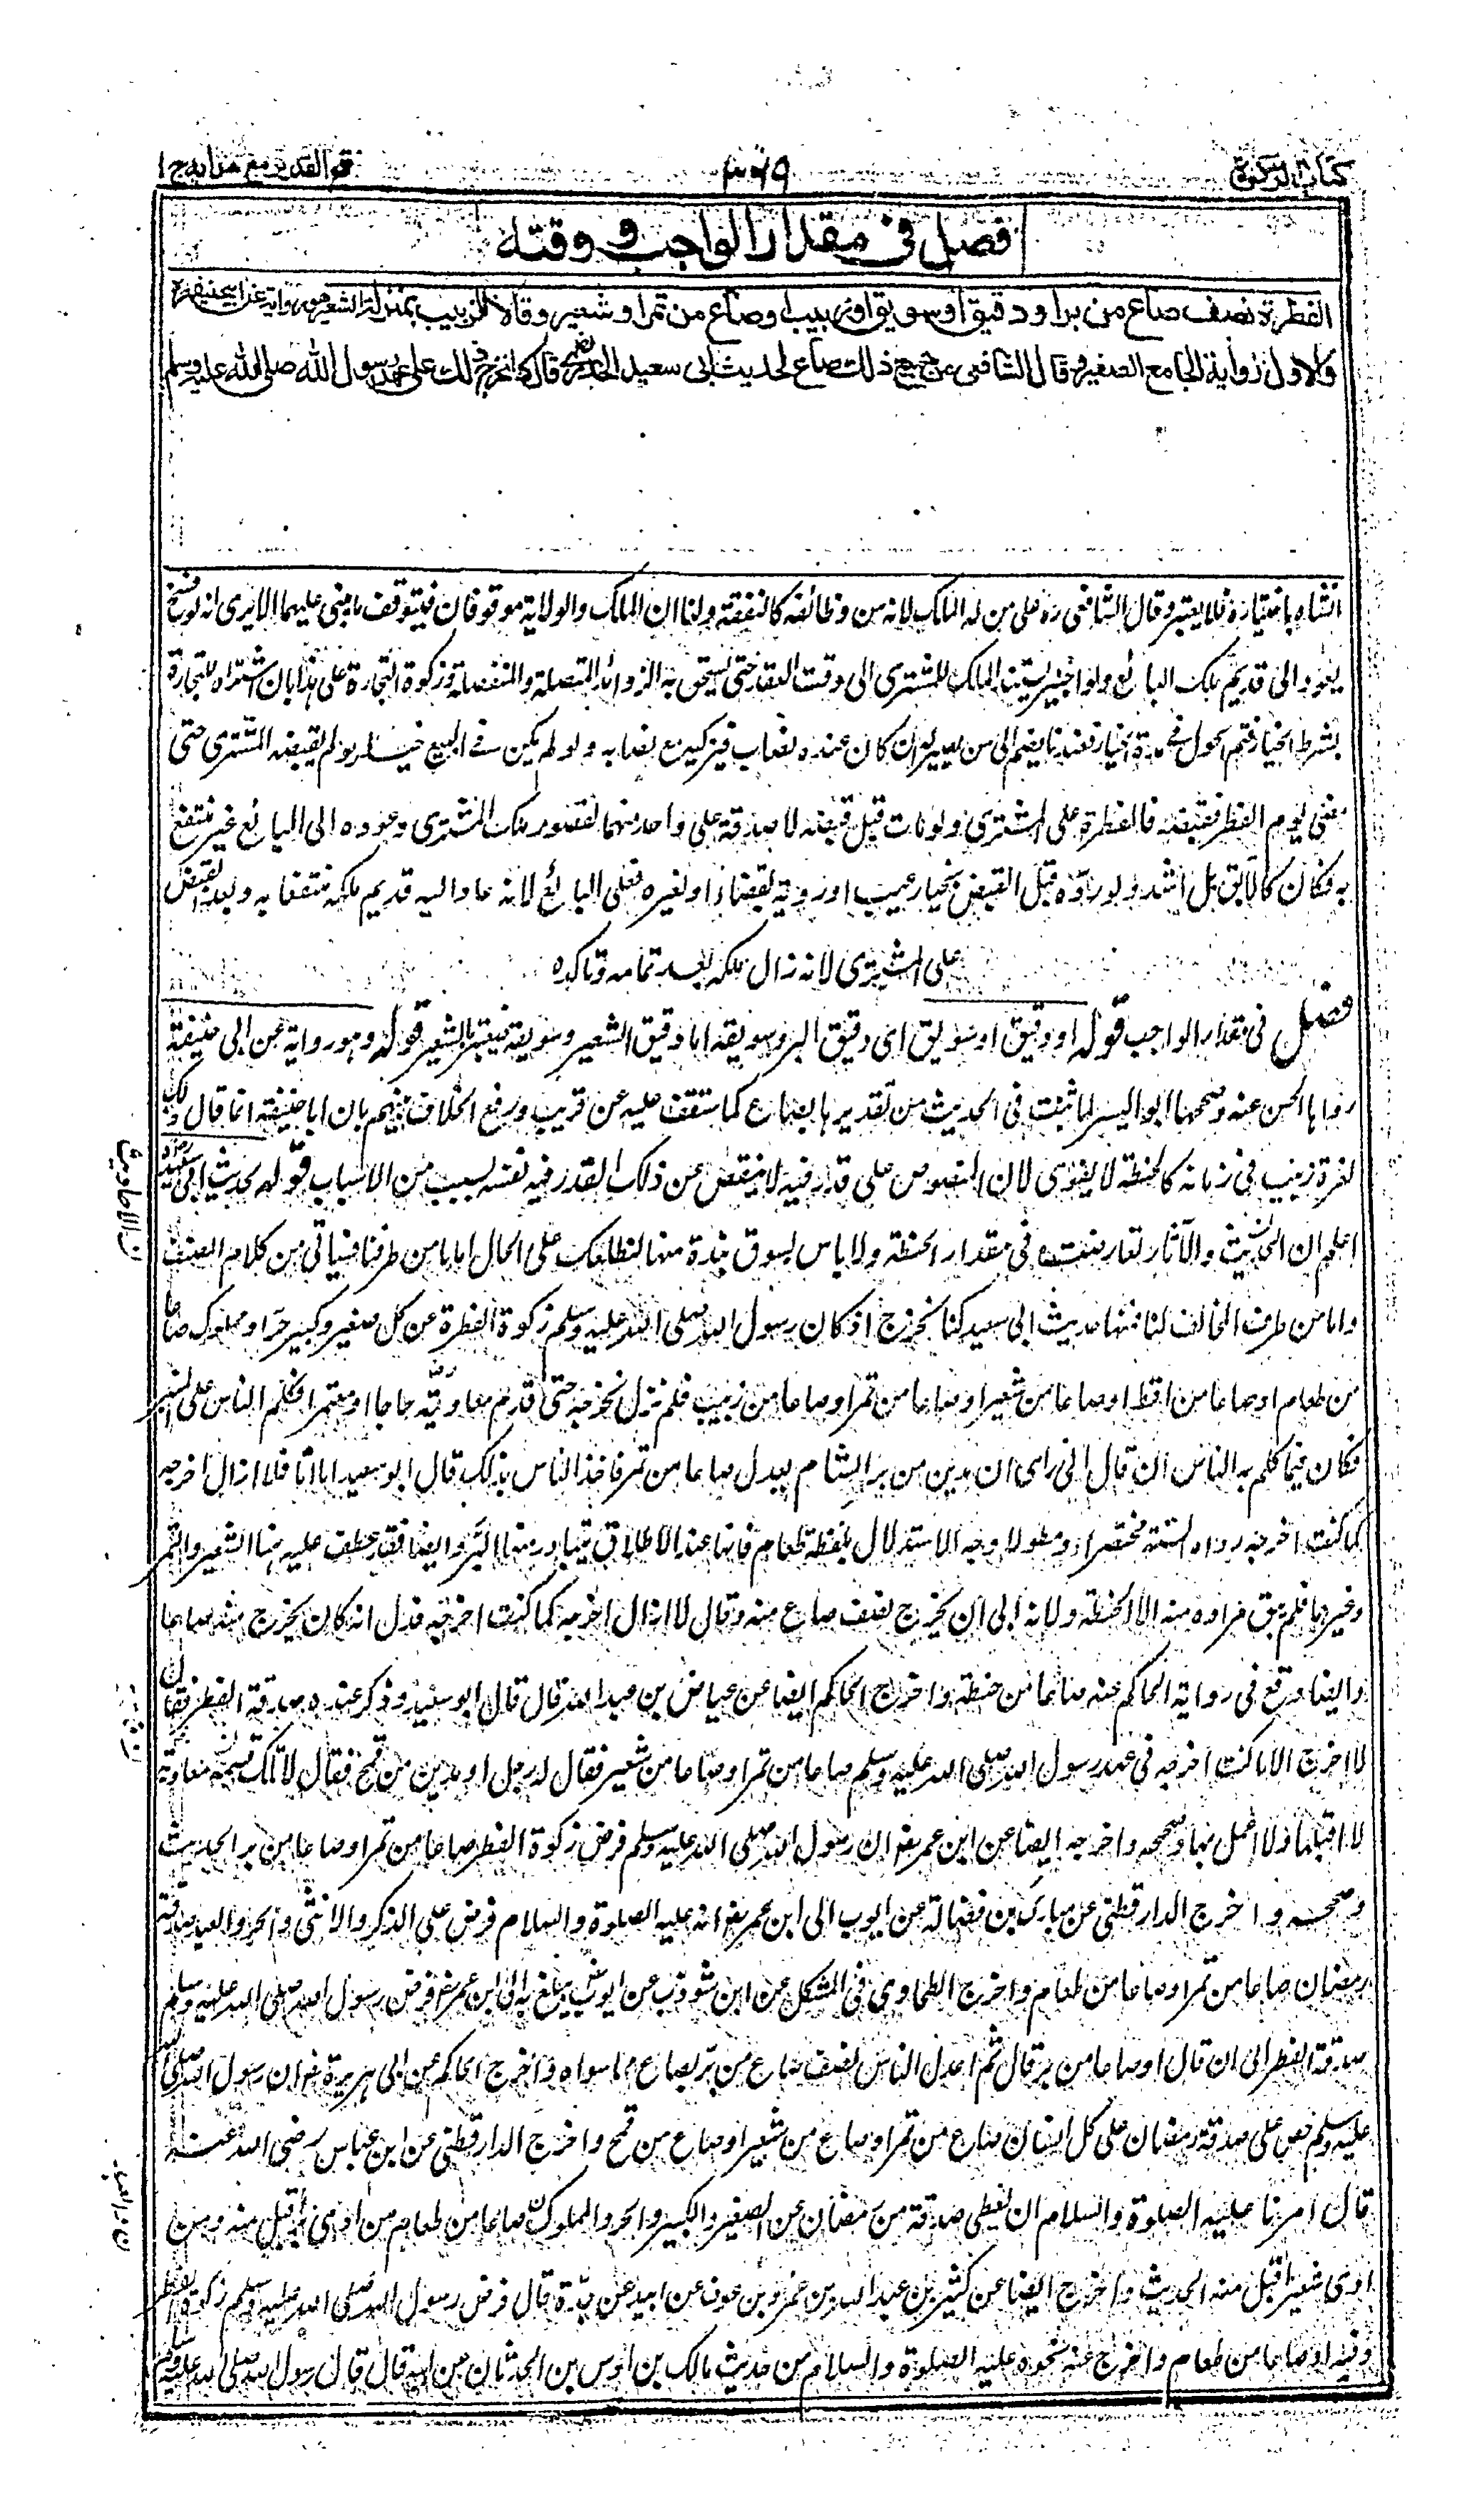 كتاب الزكوة
٣٦٩
فتح القدير مع هدايه ج ١
فصل في مقدار الواجب و وقته
الفطرة نصف صاع من بر او دقيق او سويق او زبيب او صاع من تمر او شعير وقالا الزبيب بمنزلة الشعير وهو رواية عن ابي حنيفة
والاول رواية الجامع الصغير وقال الشافعي من جميع ذلك صاع لحديث ابي سعيد الخدري قال كنا نخرج ذلك على عهد رسول الله صلى الله عليه وسلم
انشاه باختياره فلا يعتبر وقال الشافعي ره على من له الملك لانه من وظائفه كالنفقة ولنا ان الملك والولاية موقوفان فيتوقف ما يبنى عليهما الا يرى انه لو فسخ
يعود الى قديم ملك البائع ولو اجيز يستند الملك للمشترى الى وقت العقد حتى يستحق به الزوائد المتصلة والمنفصلة وزكوة التجارة على هذا بان اشتراه للتجارة
بشرط الخيار فتم الحول في مدة الخيار فعندنا يضم الى من يصير له ان كان عنده نصاب فيزكيه مع نصابه ولو لم يكن في البيع خيار ولم يقبضه المشترى حتى
مضى يوم الفطر فقبضه فالفطرة على المشترى ولو مات قبل قبضه لا صدقة على واحد منهما لقصور ملك المشترى وعوده الى البائع غير منتفع
به فكان كالآبق بل اشد ولو رده قبل القبض بخيار عيب او روية بقضاء او لغيره فعلى البائع لانه عاد اليه قديم ملكه منتفعا به وبعد القبض
على المشترى لانه زال ملكه بعد تمامه وتاكده
فصل في مقدار الواجب قوله او دقيق او سويق اى دقيق البر وسويقه اما دقيق الشعير وسويقه فيعتبر بالشعير قوله وهو رواية عن ابي حنيفة
رواها الحسن عنه وصححها ابو اليسر لما ثبت في الحديث من تقديرها بصاع كما ستقف عليه عن قريب ورفع الخلاف بينهم بان ابا حنيفة انما قال ذلك
لعزة زبيب في زمانه كالحنطة لا يقوى لان المنصوص على قدر فيه لا ينقص عن ذلك القدر فيه نفسه لسبب من الاسباب قوله لحديث ابي سعيد
اعلم ان الحديث والآثار تعارضت في مقدار الحنطة ولا باس بسوق نبذة منها لنطلعك على الحال اما ما من طرفنا فسياتي من كلام المصنف
واما من طرف المخالف لنا فمنها حديث ابي سعيد كنا نخرج اذ كان رسول الله صلى الله عليه وسلم زكوة الفطرة عن كل صغير وكبير حر او مملوك صاعا
من طعام او صاعا من اقط او صاعا من شعير او صاعا من تمر او صاعا من زبيب فلم نزل نخرجه حتى قدم معاوية حاجا او معتمرا فكلم الناس على المنبر
فكان فيما كلم به الناس ان قال انى راى ان مدين من بر الشام يعدل صاعا من تمر فاخذ الناس بذلك قال ابو سعيد اما انا فلا ازال اخرجه
كما كنت اخرجه رواه الستة مختصرا ومطولا وجه الاستدلال بلفظة طعام فانها عند الاطلاق يتبادر منها البر وايضا فقد عطف عليه هنا الشعير والتمر
وغيرهما فلم يبق مراده منه الا الحنطة ولانه ابى ان يخرج نصف صاع منه وقال لا ازال اخرجه كما كنت اخرجه فدل انه كان يخرج منه صاعا
وايضا وقع في رواية الحاكم عنه صاعا من حنطة واخرج الحاكم ايضا عن عياض بن عبد الله قال قال ابو سعيد وذكر عنده صدقة الفطر فقال
لا اخرج الا ما كنت اخرجه في عهد رسول الله صلى الله عليه وسلم صاعا من تمر او صاعا من شعير فقال له رجل او مدين من قمح فقال لا تلك قيمة معاوية
لا اقبلها ولا اعمل بها وصححه واخرجه ايضا عن ابن عمر رض ان رسول الله صلى الله عليه وسلم فرض زكوة الفطر صاعا من تمر او صاعا من بر الحديث
وصححه واخرج الدارقطني عن مبارك بن فضالة عن ايوب الى ابن عمر رض انه عليه الصلوة والسلام فرض على الذكر والانثى والحر والعبد صدقة
رمضان صاعا من تمر او صاعا من طعام واخرج الطحاوى في المشكل عن ابن شوذب عن ايوب يبلغ به الى ابن عمر رض فرض رسول الله صلى الله عليه وسلم
صدقة الفطر الى ان قال او صاعا من بر قال ثم اعدل الناس نصف صاع من بر بصاع مما سواه واخرج الحاكم عن ابي هريرة رض ان رسول الله صلى الله
عليه وسلم حض على صدقة رمضان على كل انسان صاع من تمر او صاع من شعير او صاع من قمح واخرج الدارقطني عن ابن عباس رضى الله عنه
قال امرنا عليه الصلوة والسلام ان نعطي صدقة من رمضان عن الصغير والكبير والحر والمملوك صاعا من طعام من ادى برا قبل منه ومن
ادى شعيرا قبل منه الحديث واخرج ايضا عن كثير بن عبد الله بن عمرو بن عوف عن ابيه عن جده قال فرض رسول الله صلى الله عليه وسلم زكوة الفطر
وفيه او صاعا من طعام واخرج عنه نحوه عليه الصلوة والسلام من حديث مالك بن اوس بن الحدثان عن ابيه قال قال رسول الله صلى الله عليه وسلم